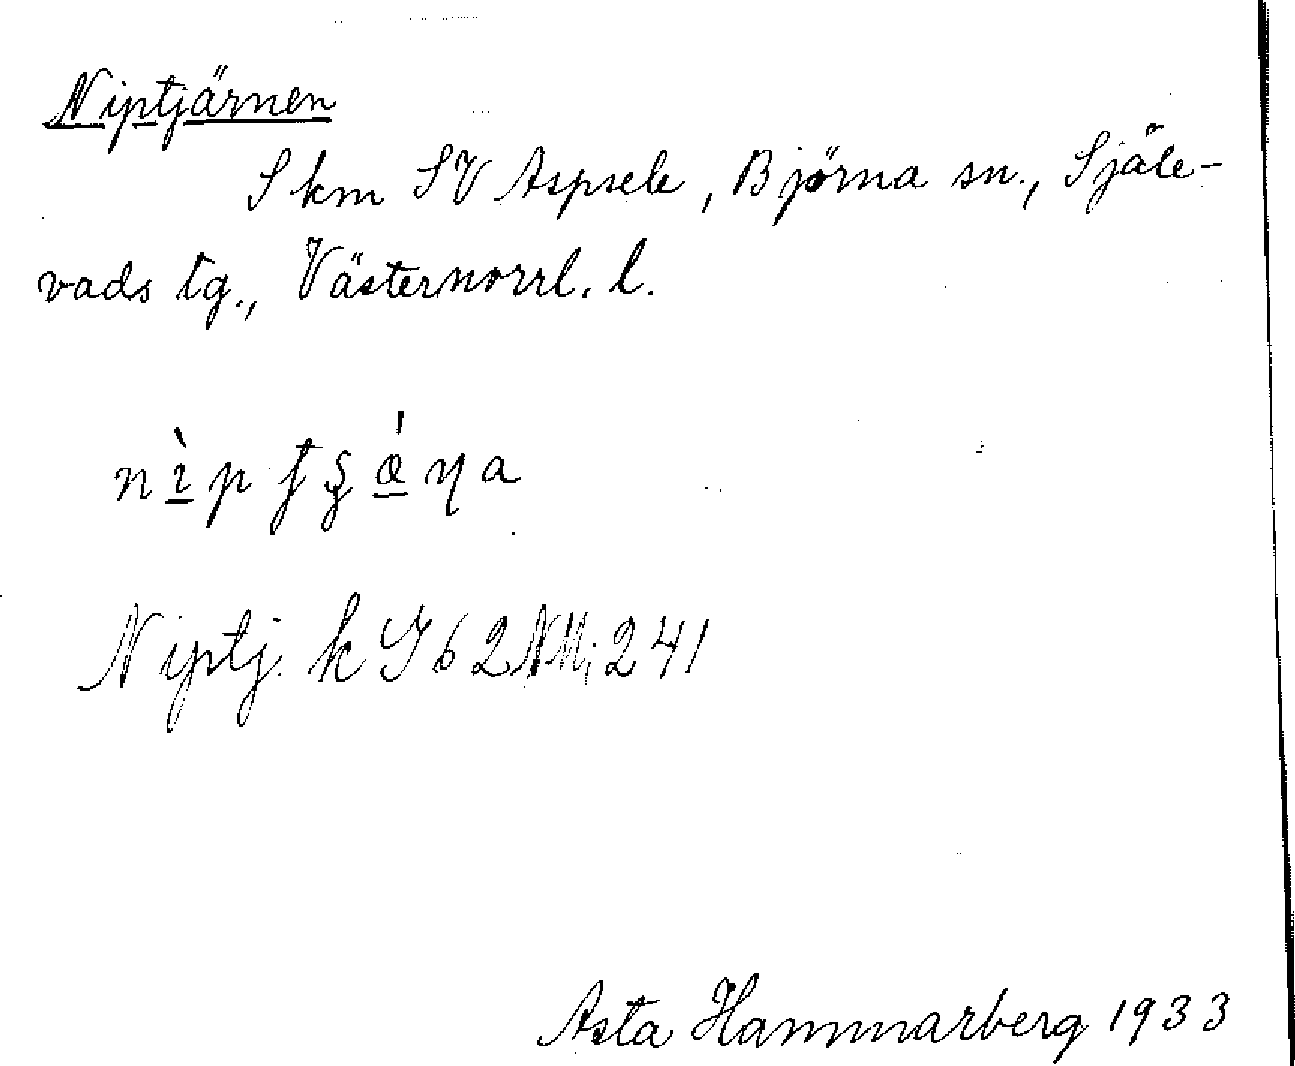 Niptjärnen
S km SV Aspsele, Björna sn., Själe-
vads tg., Västernorrl. l.
Niptj. k J62NM; 241
Asta Hammarberg 1933